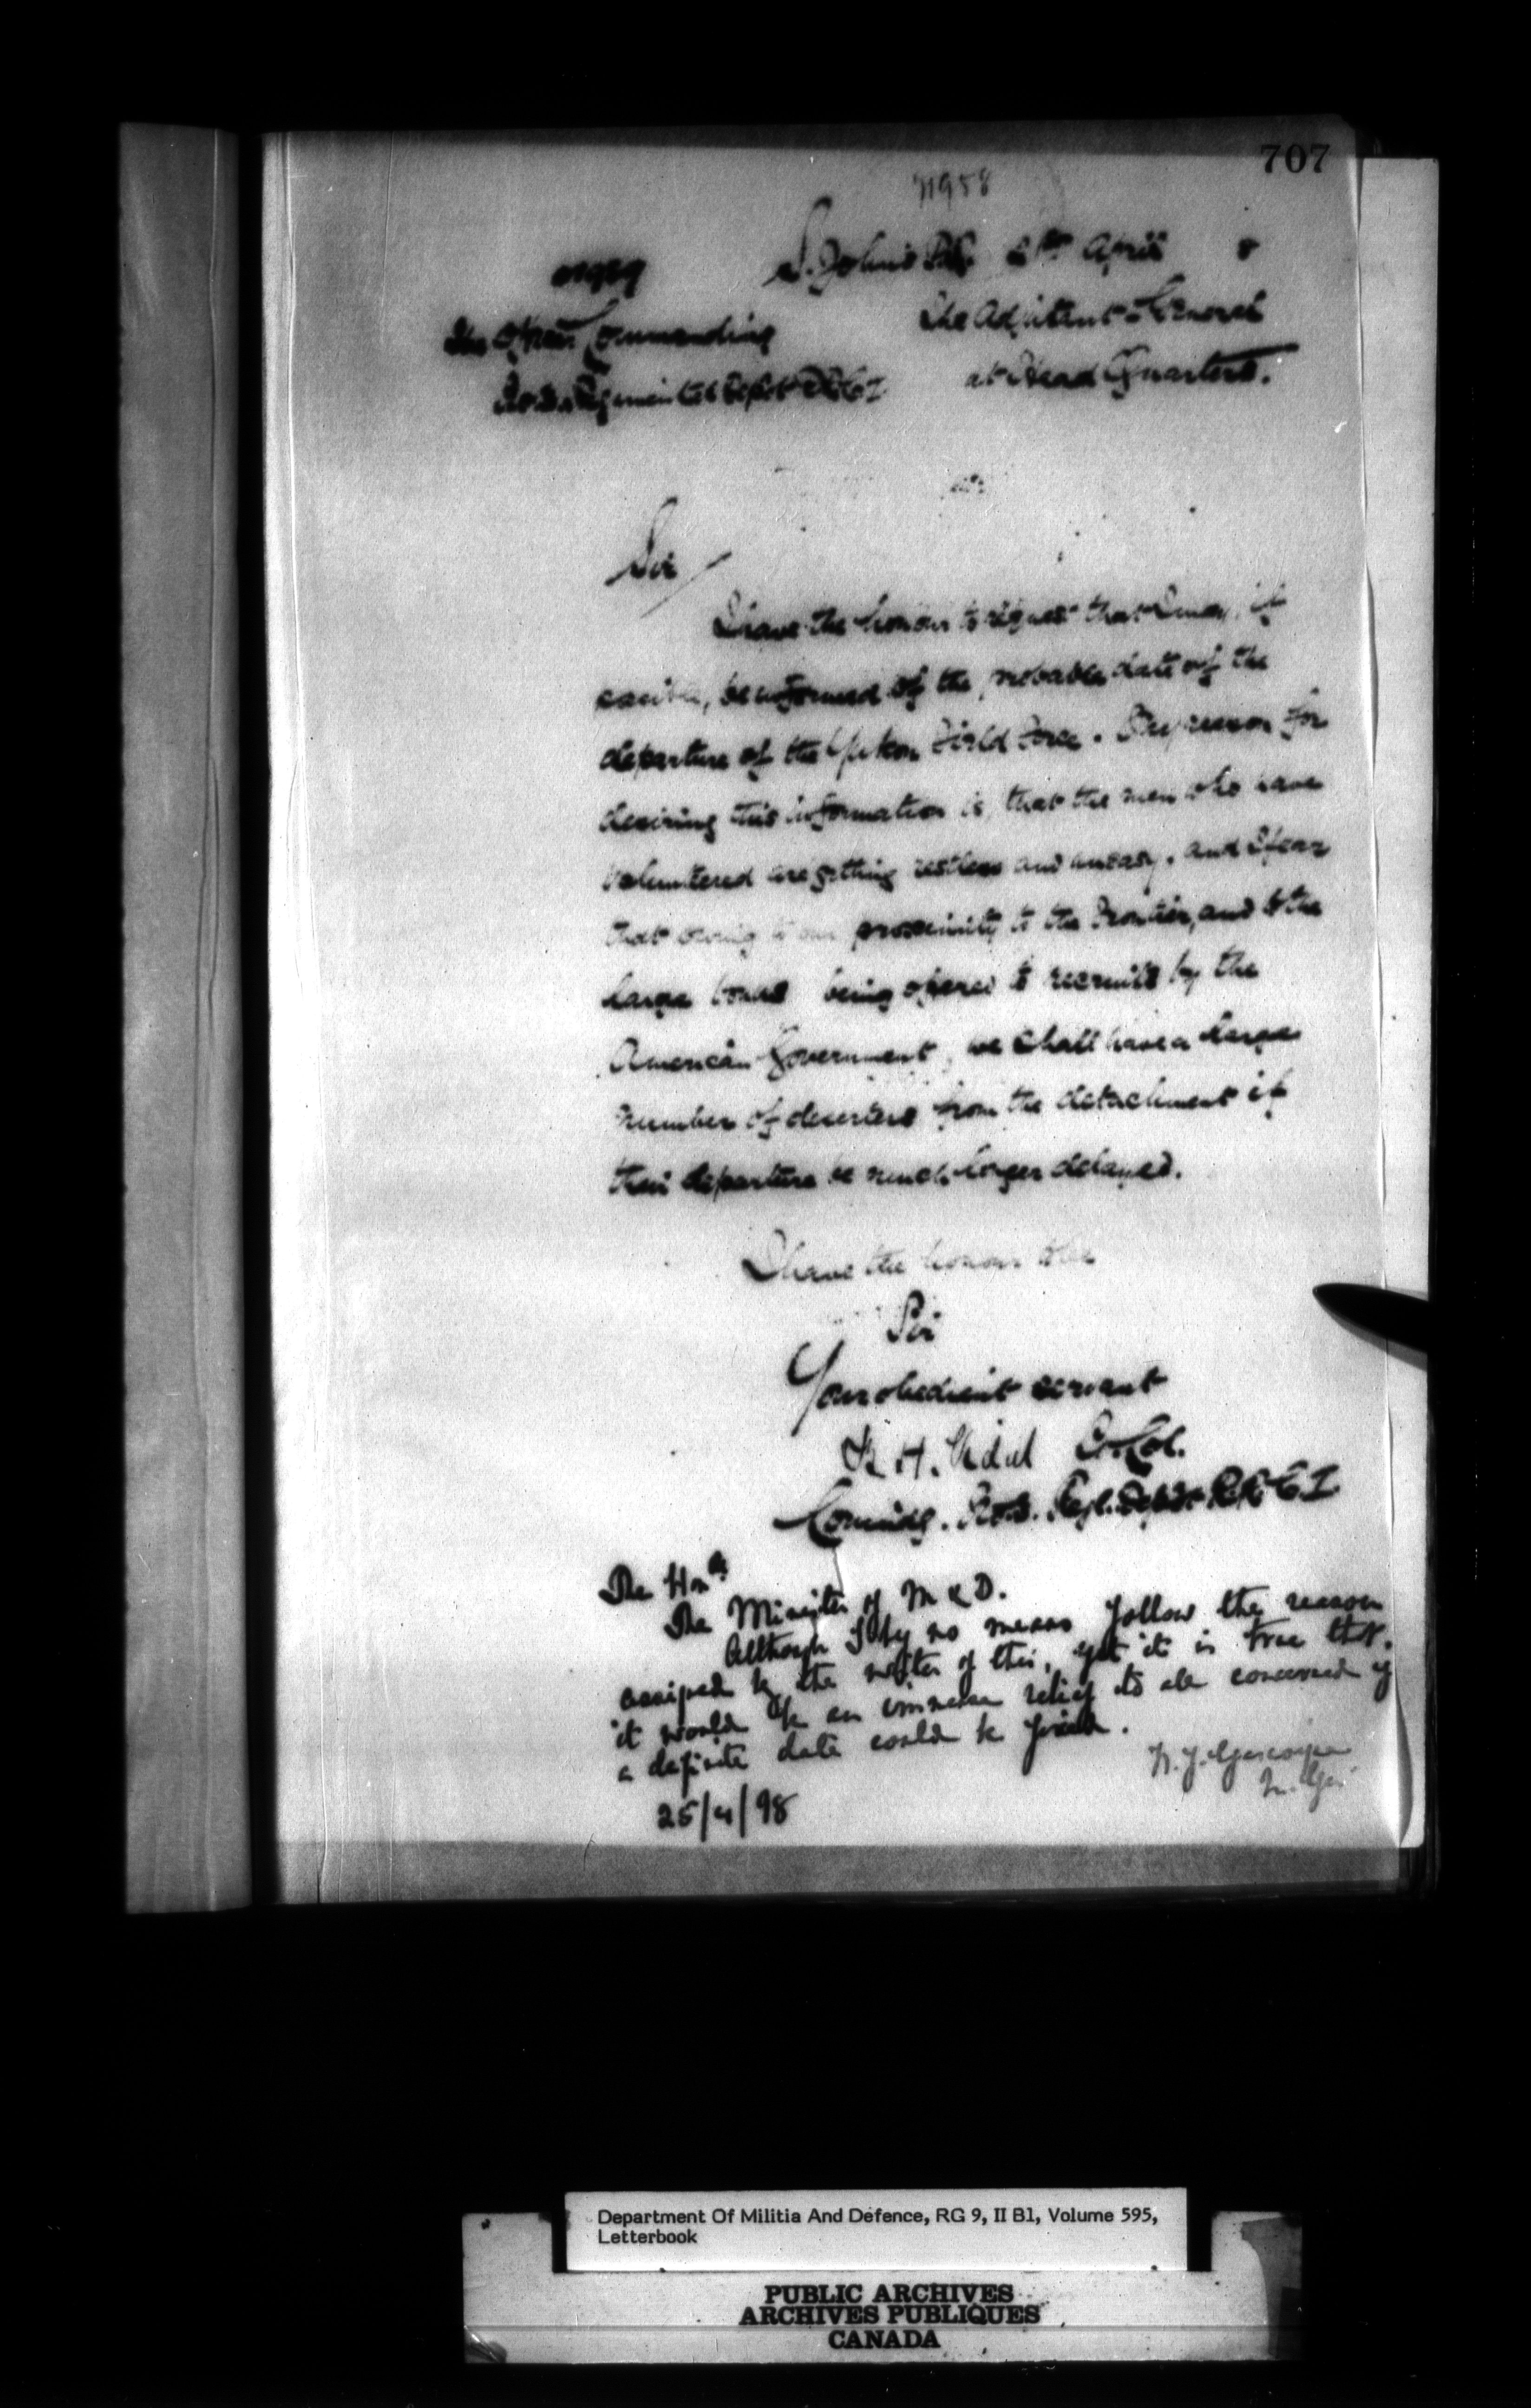 707
71958
St. Johns P.Q. 21st April 8
The Officer Commanding
No. 3 Regimental Depot R.R.C.I
The Adjutant-General
at Head Quarters.
Sir
I have the honour to request that I may, if
possible, be informed of the probable date of the
departure of the Yukon Field Force. My reason for
desiring this information is, that the men who have
volunteered are getting restless and uneasy, and I fear
that owing to our proximity to the Frontier, and to the
large bonus being offered to recruits by the
American Government, we shall have a large
number of deserters from the detachment if
their departure be much longer delayed.
I have the honour to be
Sir
Your obedient servant
B H. Vidal Lt. Col.
Commdg. No. 3. Regl. Depot R.R.C.I
The Honble
The Minister of M & D.
Although I by no means follow the reason
assigned by the writer of this, yet it is true that
it would be an immense relief to all concerned if
a definite date could be fixed.
W. J. Gascoigne
M. Gen.
25/4/98
Department Of Militia And Defence, RG 9, II B1, Volume 595,
Letterbook
PUBLIC ARCHIVES
ARCHIVES PUBLIQUES
CANADA